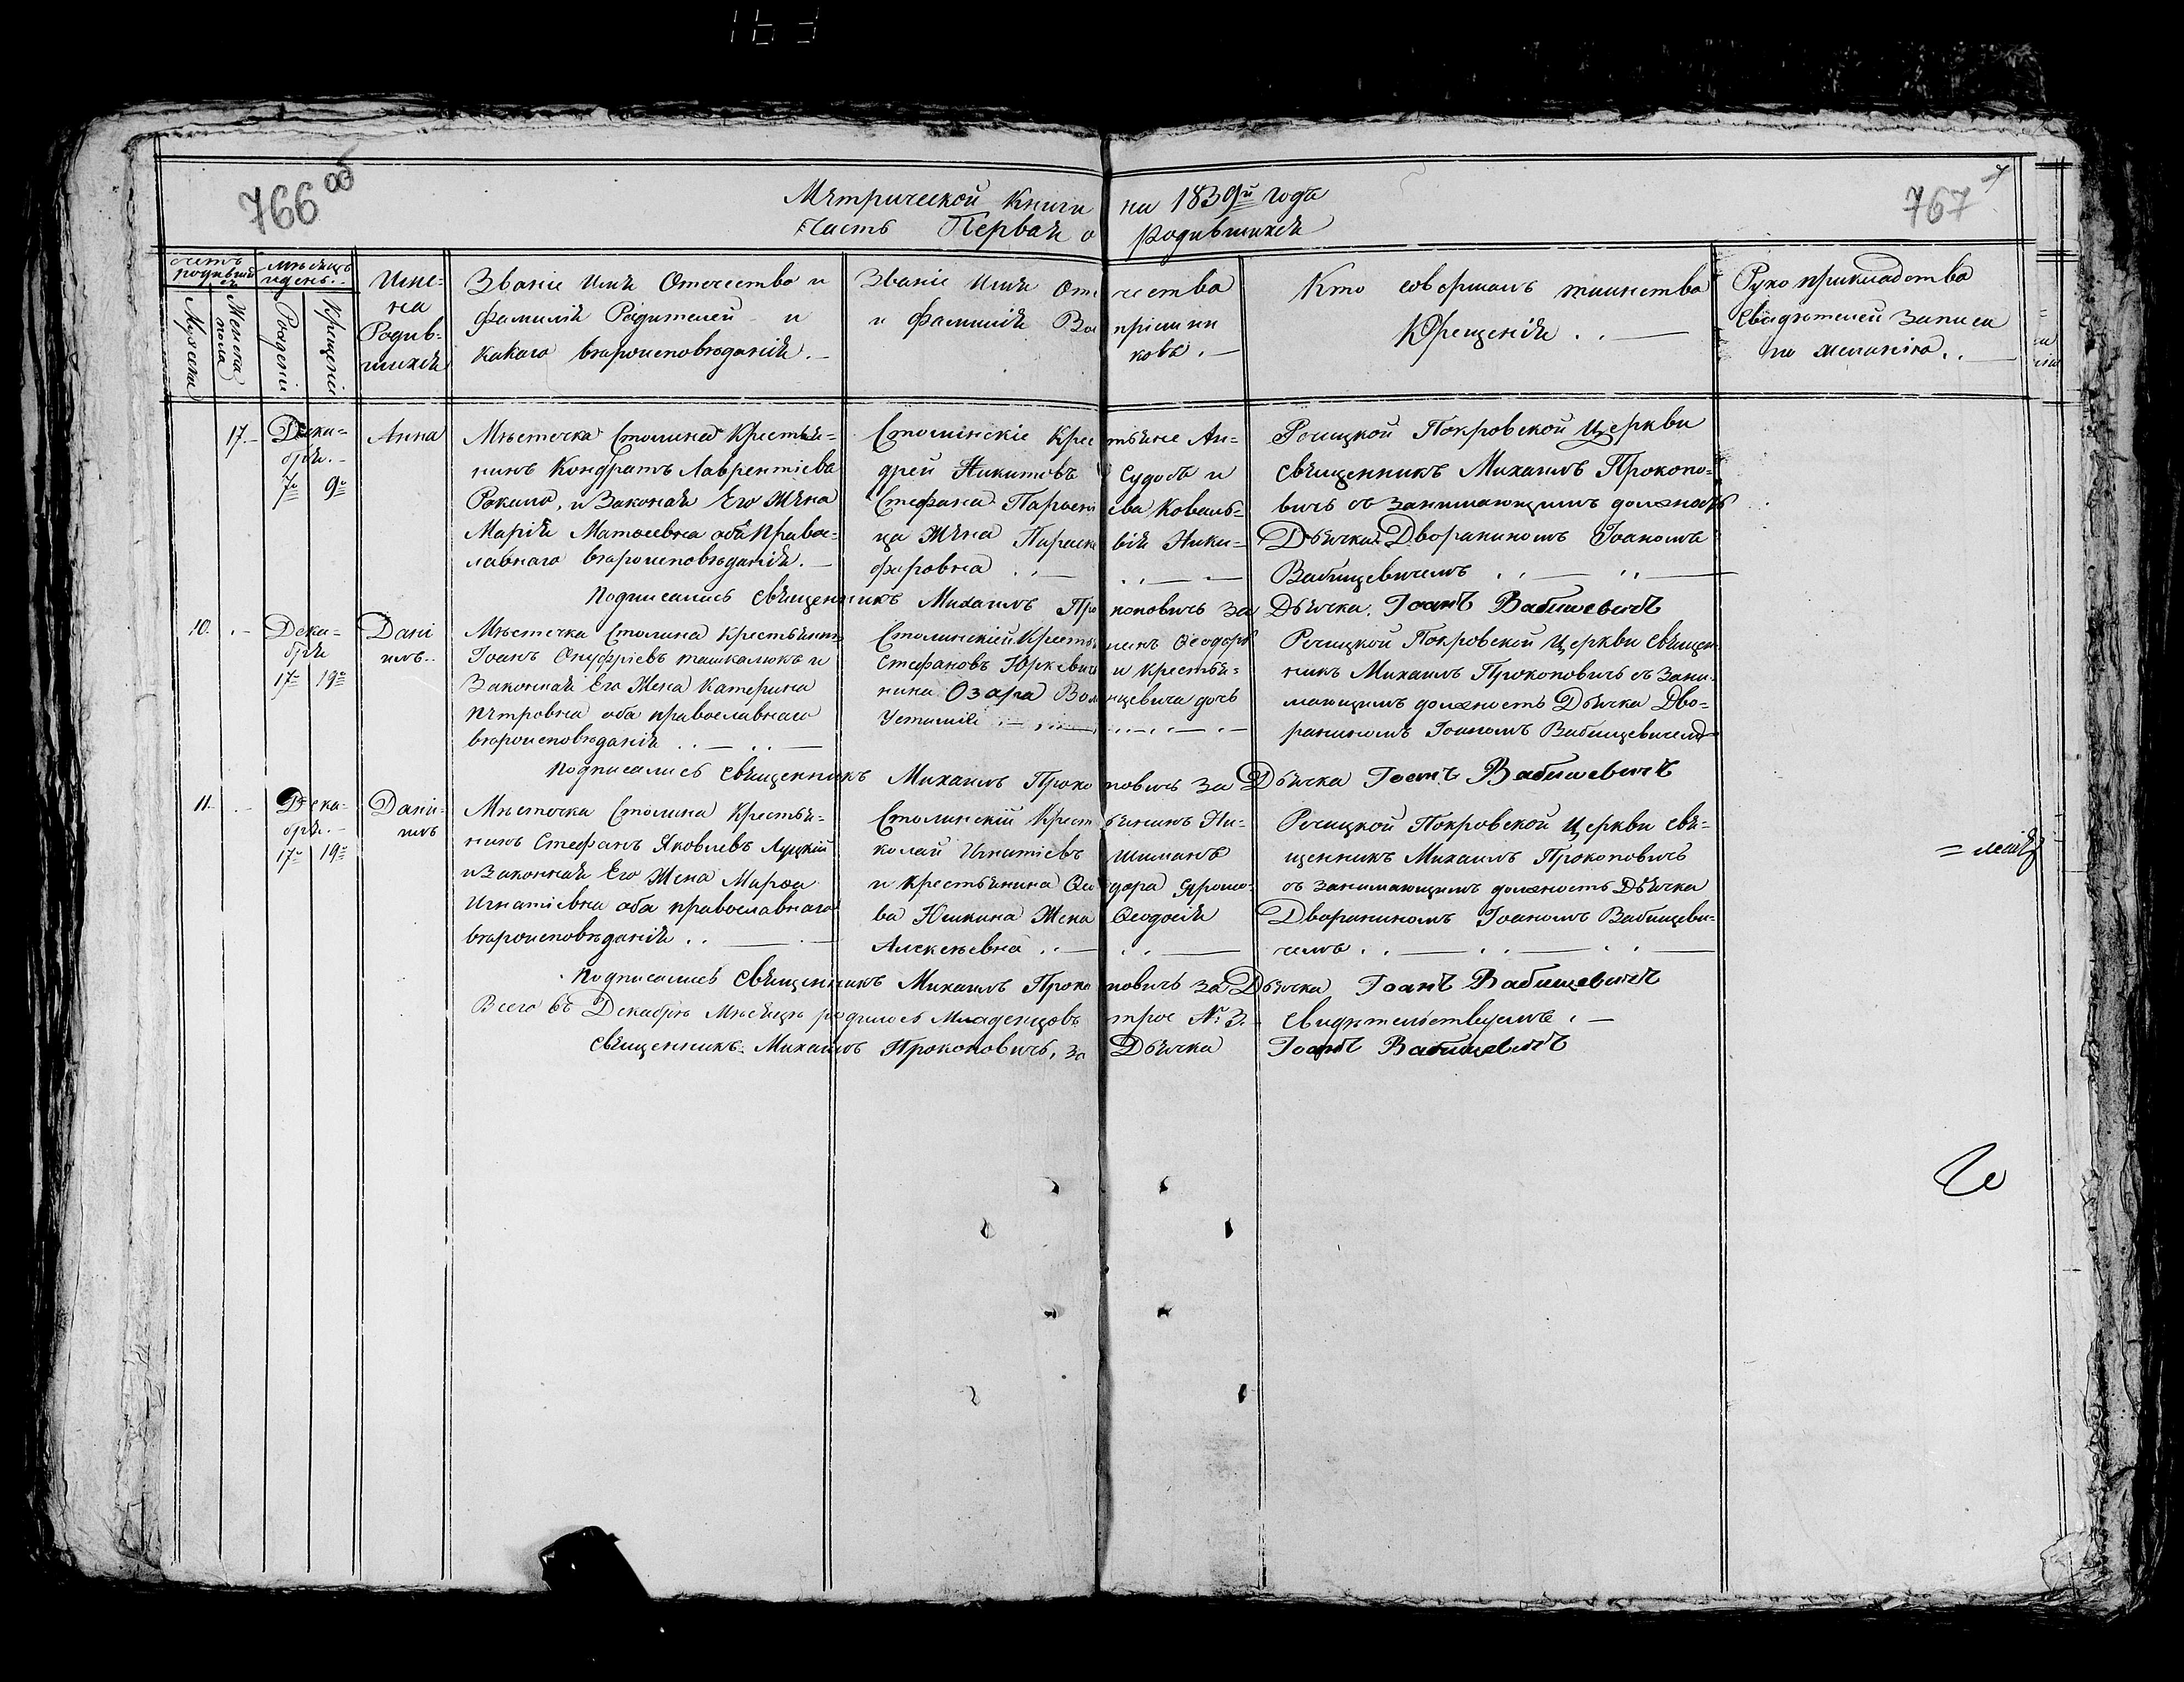 766 об
767
Метрической Книги на 1839й года
Часть Первая о Родившихся
счетъ родившихся
Мужеска
Женска пола
мѣсяцъ и день
Рожденія
Крещенія
Име=
на
Родив=
шихся
Званіе Имя Отечество и
фамилія Родителей и
какаго вѣроисповѣданія.
Званіе Имя Отечества
и фамилія Воспріемни
ковъ.
Кто совершалъ таинства
Крещенія
Рукоприкладства
Свидѣтелей записи
по желанію
17.
Дека=
бря.
7го 9го
Анна
Мѣстечка Столина Крестья=
нинъ Кондратъ Лаврентіевъ
и Законая Его Жена
Марія Матѳеевна оба Право=
лавнаго вѣроисповѣданія.
Столинскіе Крестьяне Ан=
дрей Никитовъ Судовъ и
Стефана Коваль=
ца Жена Параскевія Ники=
форовна
Речицкой Покровской Церкви
священникъ Михаилъ Прокопо=
вичъ съ занимающимъ должность
Дьячка Дворяниномъ Іоаномъ
Вабищевичемъ
Подписались священникъ Михаилъ Прокоповичъ за Дьячка Іоанъ Вабищевичъ
10.
Дека=
бря
17го 19го
Дані
илъ
Мѣстечка Столина Крестьянинъ
Іоанъ Онуфріевъ Пашкалюкъ и
Законная Его Жена Катерина
Петровна оба православнаго
вѣроисповѣданія
Столинскій Крестьянинъ Ѳеодоръ
Стефановъ Юркевичъ и Крестья=
нина Озара дочь
Устинія
Речицкой Покровской Церкви Священ
никъ Михаилъ Прокоповичъ съ Зани
мающимъ должность Дьячка Дво=
ряниномъ Іоаномъ Вабищевичемъ
Подписались священникъ Михаилъ Прокоповичъ за Дьячка Іоанъ Вабищевичъ
11.
Дека=
бря.
17го 19го
Дани=
илъ
Мѣстечка Столина Крестья=
нинъ Стефанъ Яковлевъ Луцкій
и Законная Его Жена Марѳа
Игнатіевна оба православнаго
вѣроисповѣданія
Столинскій Крестьянинъ Ни=
колай Игнатіевъ Шиманъ
и крестьянина Ѳеодора Ярмо=
ва Юшкина Жена Ѳеодосія
Алексѣевна
Речицкой Покровской Церкви Свя=
щенникъ Михаилъ Прокоповичъ
съ занимающимъ должность Дьячка
Дворяниномъ Іоаномъ Вабищеви=
чемъ
Подписались священникъ Михаилъ Прокоповичъ за Дьячка Іоанъ Вабищевичъ
Всего въ Декабрѣ Мѣсяцѣ родилось Младенцовъ трое № 3. Свидѣтельствуемъ.
священникъ Михаилъ Прокоповичъ, за Дьячка Іоанъ Вабищевичъ